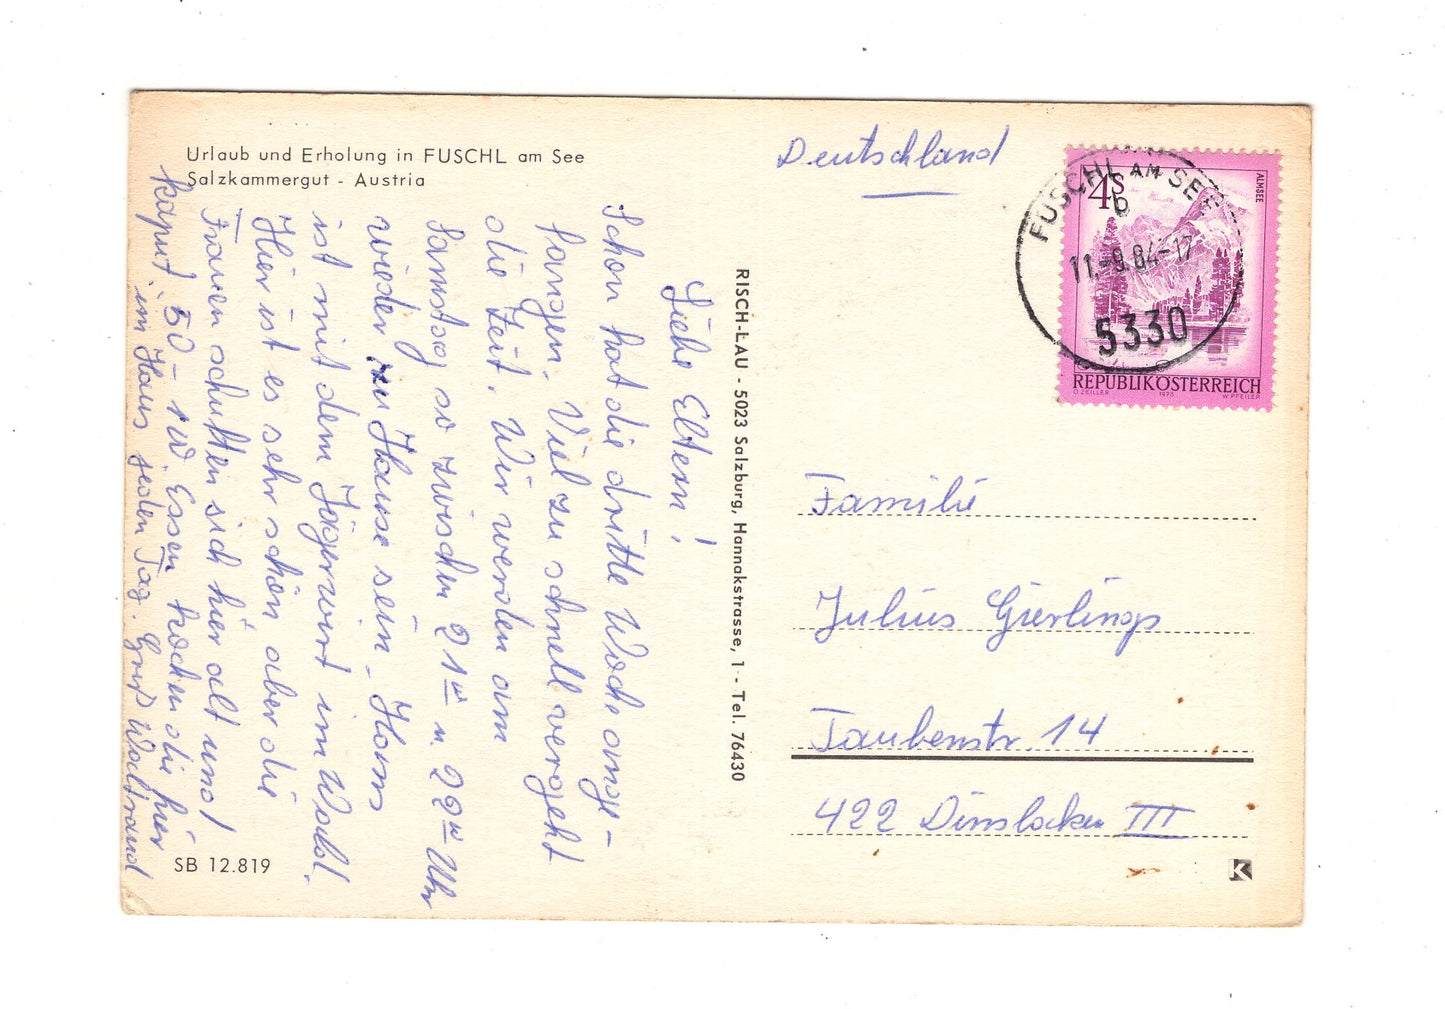 Urlaub und Erholung in FUSCHL am See
Salzkammergut - Austria
Liebe Eltern!
Schon hat die dritte Woche ange-
fangen. Viel zu schnell vergeht
die Zeit. Wir werden am
Samstag so zwischen 21ºº u. 22ºº Uhr
wieder zu Hause sein. Hans
ist mit dem Jägerwirt im Wald.
Hier ist es sehr schön aber die
Frauen schuften sich hier alt und
kaput. 50-100 Essen kochen die hier
im Haus jeden Tag. Gruß Waltraud
SB 12.819
RISCH-LAU - 5023 Salzburg, Hannakstrasse, 1 - Tel. 76430
Deutschland
4S
ALMSEE
REPUBLIK ÖSTERREICH
O.ZEILLER 1973 W.PFEILER
FUSCHL AM SEE
b
11.-9.84-17
5330
Familie
Julius Gierlings
Taubenstr. 14
422 Dinslaken III
K